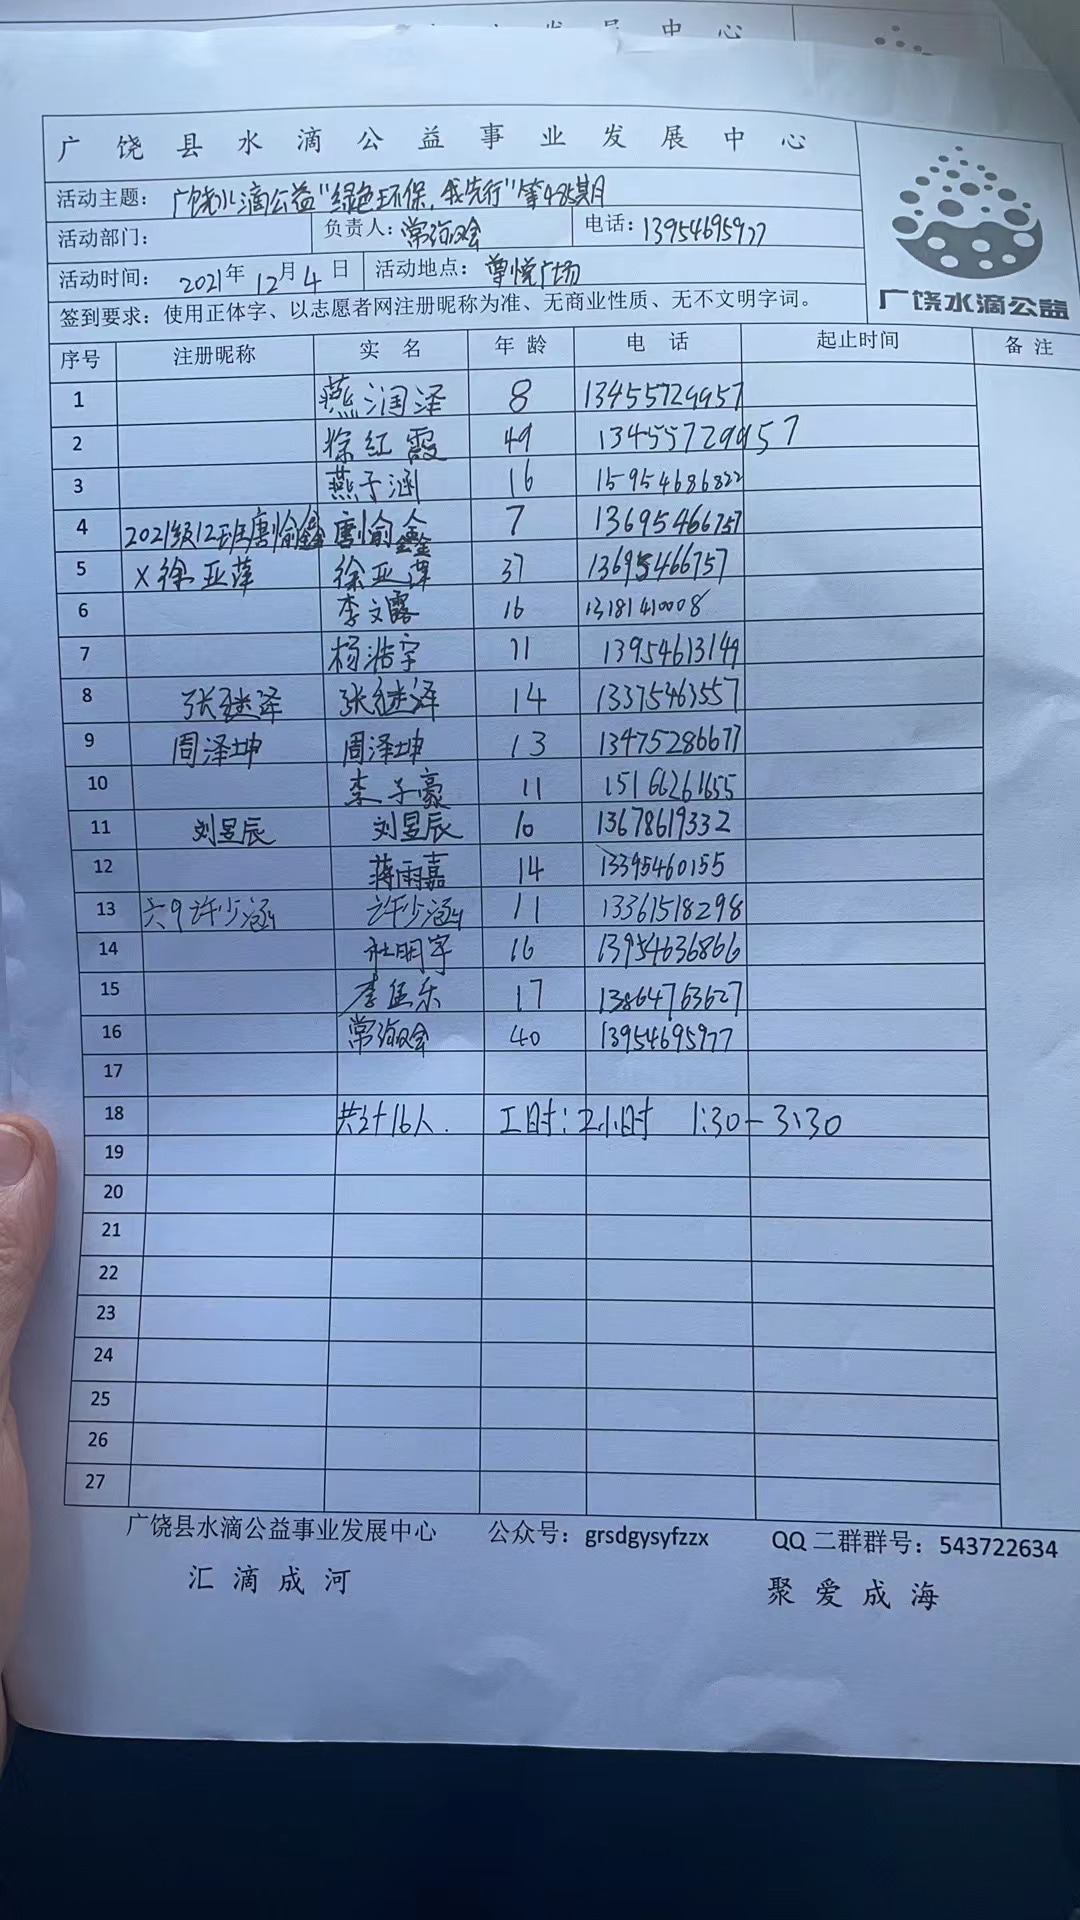 广饶县水滴公益事业发展中心
活动主题：广饶水滴公益"绿色环保，我先行"第485期
活动部门： 负责人：常海会 电话：13954695977
活动时间：2021年12月4日 活动地点：尊悦广场
签到要求：使用正体字、以志愿者网注册昵称为准、无商业性质、无不文明字词。
广饶水滴公益
序号 注册昵称 实名 年龄 电话 起止时间 备注
1 燕润泽 8 13455729957
2 徐红霞 49 13455729957
3 燕子涵 16 15954686822
4 2021级12班唐愉鑫 唐愉鑫 7 13695466757
5 X徐亚萍 徐亚萍 37 13695466757
6 李文露 16 13181410008
7 杨浩宇 11 13954613149
8 张继泽 张继泽 14 13375463557
9 周泽坤 周泽坤 13 13475286677
10 李子豪 11 15166261655
11 刘昱辰 刘昱辰 10 13678619332
12 蒋雨嘉 14 13395460155
13 六9许少涵 许少涵 11 13361518298
14 杜明宇 16 13954636866
15 李孟乐 17 13864763627
16 常海会 40 13954695977
17
18 共计16人. 工时：2小时 1:30-3:30
19
20
21
22
23
24
25
26
27
广饶县水滴公益事业发展中心 公众号：grsdgysyfzzx QQ二群群号：543722634
汇滴成河 聚爱成海